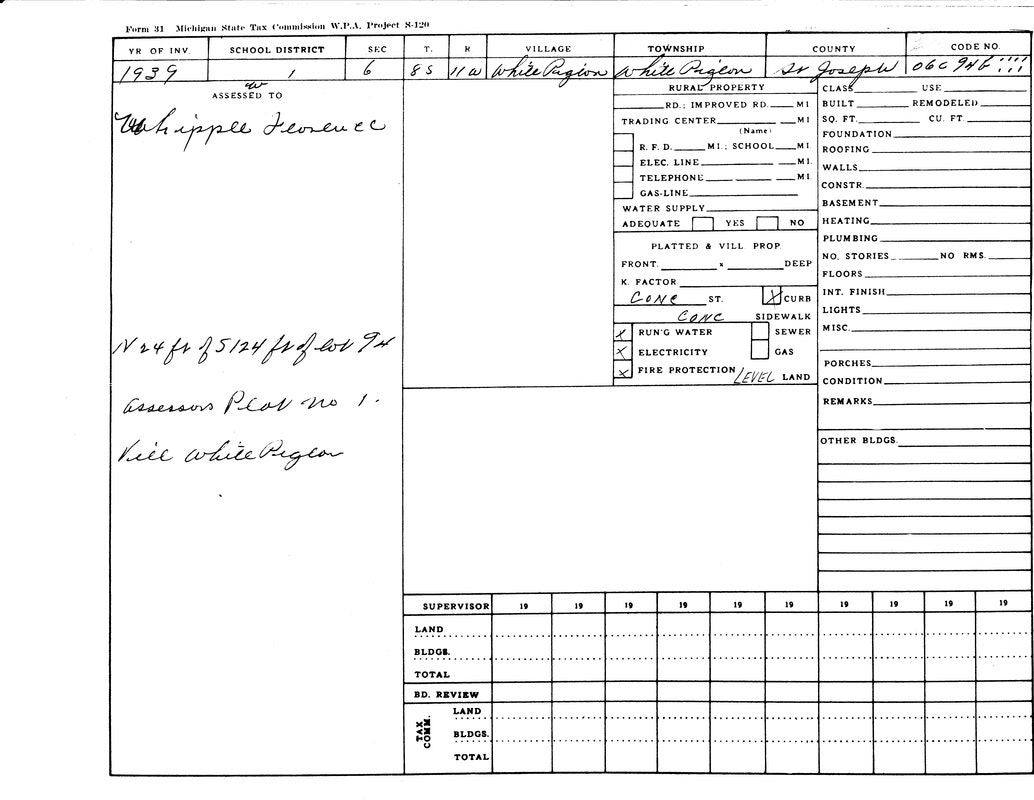 Form 31 Michigan State Tax Commission W.P.A. Project S-120
YR OF INV. SCHOOL DISTRICT SEC T. R VILLAGE TOWNSHIP COUNTY CODE NO.
1939 1 6 8S 11W White Pigeon White Pigeon St Joseph 06C 94b
ASSESSED TO
Whipple Florence
N 24 ft of S 124 ft of lot 94
Assessors Plat no 1.
Vill White Pigeon
RURAL PROPERTY
RD.; IMPROVED RD. MI.
TRADING CENTER MI
(Name)
R. F. D. MI.; SCHOOL MI.
ELEC. LINE MI.
TELEPHONE MI.
GAS-LINE
WATER SUPPLY
ADEQUATE YES NO
PLATTED & VILL. PROP.
FRONT. x DEEP
K. FACTOR
CONC ST. X CURB
CONC SIDEWALK
X RUN'G WATER SEWER
X ELECTRICITY GAS
X FIRE PROTECTION LEVEL LAND
CLASS USE
BUILT REMODELED
SQ. FT. CU. FT.
FOUNDATION
ROOFING
WALLS
CONSTR.
BASEMENT
HEATING
PLUMBING
NO. STORIES NO RMS.
FLOORS
INT. FINISH
LIGHTS
MISC.
PORCHES
CONDITION
REMARKS
OTHER BLDGS.
SUPERVISOR 19 19 19 19 19 19 19 19 19 19
LAND
BLDGS.
TOTAL
BD. REVIEW
TAX COMM.
LAND
BLDGS.
TOTAL